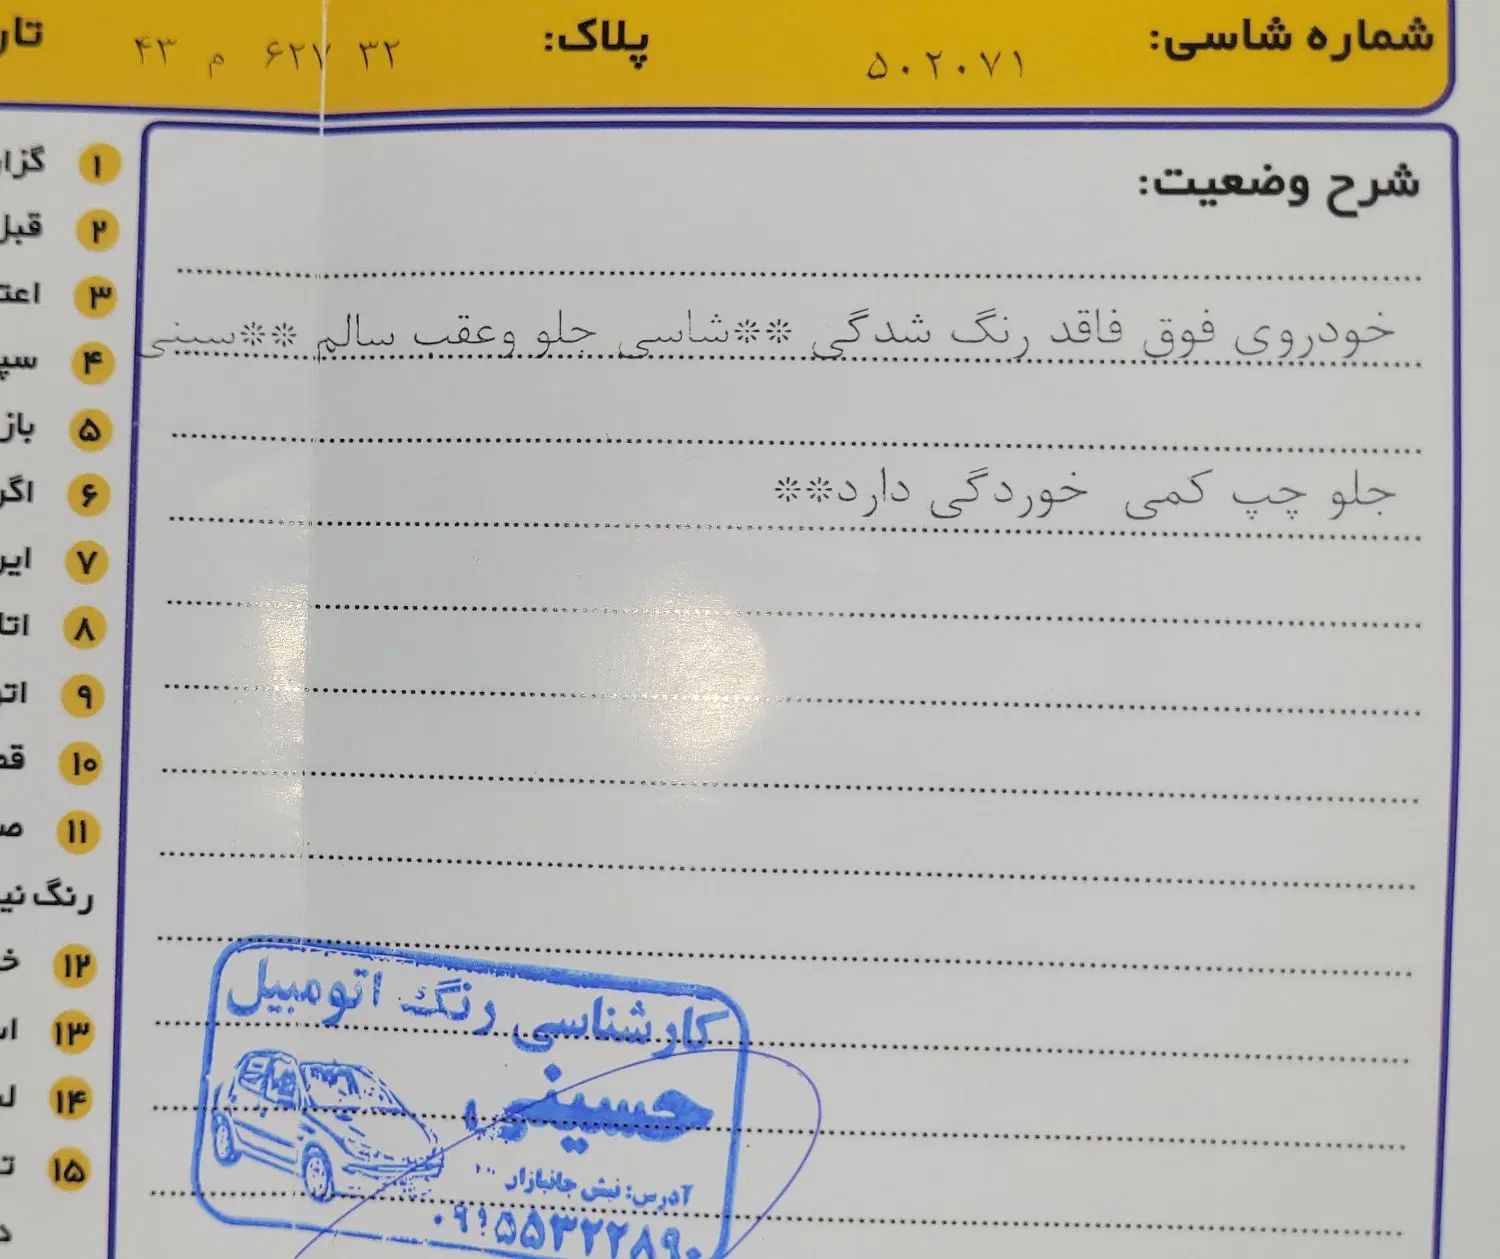 شماره شاسی: ۵۰۲۰۷۱ پلاک: ۳۲ ۶۲۷ م ۴۳
شرح وضعیت:
خودروی فوق فاقد رنگ شدگی **شاسی جلو وعقب سالم **سینی
جلو چپ کمی خوردگی دارد**
۱
۲
۳
۴
۵
۶ اگر
۷
۸
۹
۱۰
۱۱
رنگ
۱۲
۱۳
۱۴
۱۵
کارشناسی رنگ اتومبیل
حسینی
آدرس: نبش جانبازار
۰۹۱۵۵۳۲۲۸۹۰